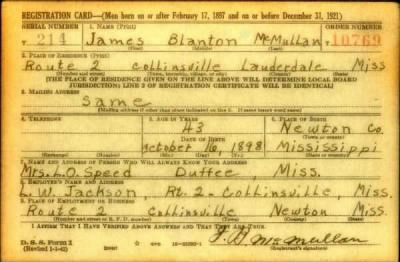 REGISTRATION CARD—(Men born on or after February 17, 1897 and on or before December 31, 1921)
SERIAL NUMBER 1. NAME (Print) ORDER NUMBER
T 214 James Blanton McMullan 10769
(First) (Middle) (Last)
2. PLACE OF RESIDENCE (Print)
Route 2 Collinsville Lauderdale Miss
(Number and street) (Town, township, village, or city) (County) (State)
[THE PLACE OF RESIDENCE GIVEN ON THE LINE ABOVE WILL DETERMINE LOCAL BOARD
JURISDICTION; LINE 2 OF REGISTRATION CERTIFICATE WILL BE IDENTICAL]
3. MAILING ADDRESS
Same
[Mailing address if other than place indicated on line 2. If same insert word same]
4. TELEPHONE 5. AGE IN YEARS 6. PLACE OF BIRTH
43 Newton Co.
DATE OF BIRTH (Town or county)
October 16, 1898 Mississippi
(Exchange) (Number) (Mo.) (Day) (Yr.) (State or country)
7. NAME AND ADDRESS OF PERSON WHO WILL ALWAYS KNOW YOUR ADDRESS
Mrs. L.O. Speed Duffee, Miss.
8. EMPLOYER'S NAME AND ADDRESS
W. Jackson, Rt. 2 - Collinsville, Miss.
9. PLACE OF EMPLOYMENT OR BUSINESS
Route 2 Collinsville Newton Miss.
(Number and street or R. F. D. number) (Town) (County) (State)
I AFFIRM THAT I HAVE VERIFIED ABOVE ANSWERS AND THAT THEY ARE TRUE.
D. S. S. Form 1
(Revised 1-1-42) (over)
McMullan
(Registrant's signature)